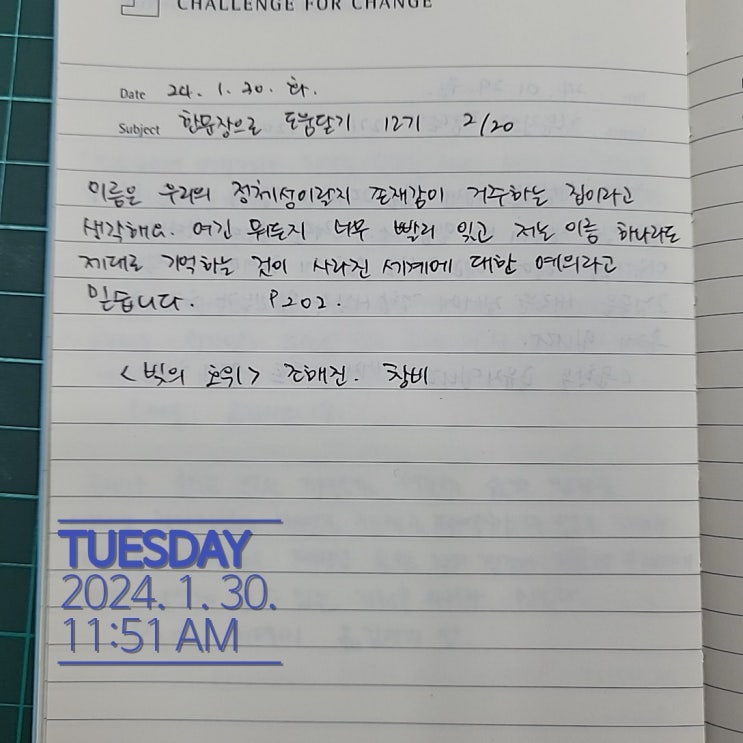 CHALLENGE FOR CHANGE
Date 24. 1. 30. 화.
Subject 한문장으로 도움닫기 12기 2/20
이름은 우리의 정체성이랄지 존재감이 거주하는 집이라고
생각해요. 여긴 뭐든지 너무 빨리 잊고 저는 이름 하나라도
제대로 기억하는 것이 사라진 세계에 대한 예의라고
믿습니다. P202.
<빛의 호위> 조해진. 창비
TUESDAY
2024. 1. 30.
11:51 AM